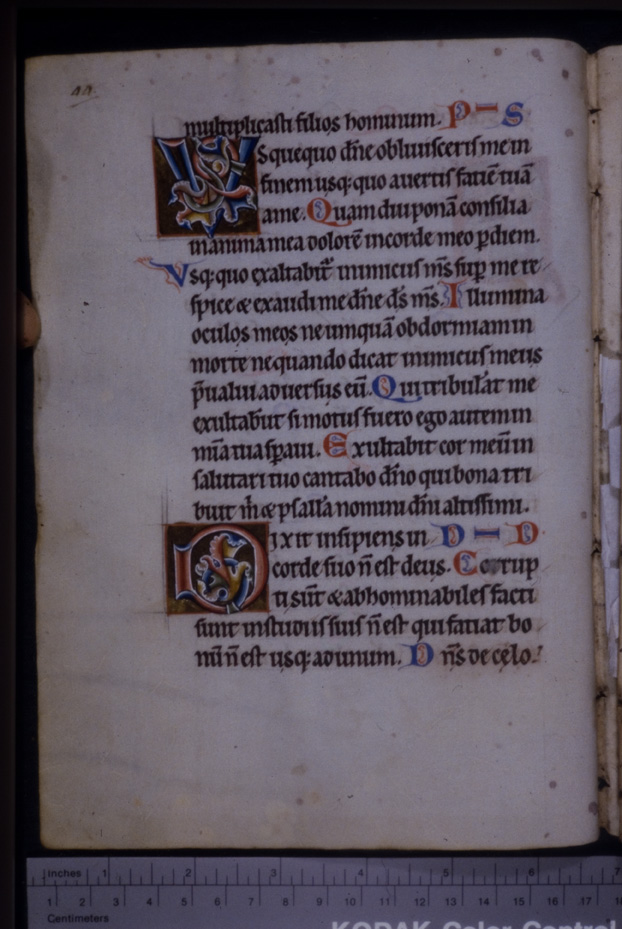 44
multiplicasti filios hominum. P I S
VSquequo dn̄e obliuisceris me in
finem usq; quo auertis faciē tuā
ame. Quam diu ponā consilia
in anima mea dolorē in corde meo p̱ diem.
Vsq; quo exaltabit̄ inimicus m̄s sup̱ me re
spice & exaudi me dn̄e ds̄ m̄s. Illumina
oculos meos ne umquā obdormiam in
morte ne quando dicat inimicus meus
p̄ualui aduersus eū. Qui tribulāt me
exultab̄ut si motus fuero ego autem in
mīa tua sp̱aui. Exultabit cor meū in
salutari tuo cantabo dn̄o qui bona tri
buit m̄ & psallā nomini dn̄i altissimi.
DIxit insipiens in D I D
corde suo n̄ est deus. Corrup
ti sūt & abhominabiles facti
sunt in studiis suis n̄ est qui faciat bo
nū n̄ est usq; ad unum. Dn̄s de cęlo
inches 1 2 3 4 5 6 7
1 2 3 4 5 6 7 8 9 10 11 12 13 14 15 16 17 18
Centimeters
KODAK Color Control